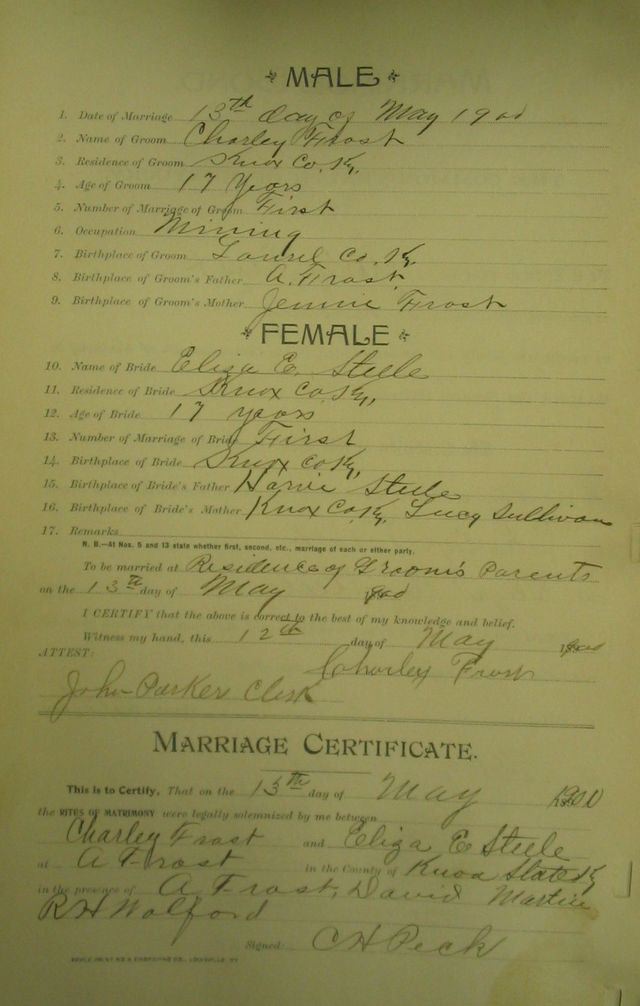 MALE
1. Date of Marriage 13th day of May 1900
2. Name of Groom Charley Frost
3. Residence of Groom Knox Co. Ky.
4. Age of Groom 17 Years
5. Number of Marriage of Groom First
6. Occupation Mining
7. Birthplace of Groom Laurel Co. Ky.
8. Birthplace of Groom's Father A. Frost
9. Birthplace of Groom's Mother Jennie Frost
FEMALE
10. Name of Bride Eliza E. Steele
11. Residence of Bride Knox Co Ky,
12. Age of Bride 17 years
13. Number of Marriage of Bride First
14. Birthplace of Bride Knox Co Ky,
15. Birthplace of Bride's Father Harvie Steele
16. Birthplace of Bride's Mother Knox Co Ky, Lucy Sullivan
17. Remarks
N. B.—At Nos. 5 and 13 state whether first, second, etc., marriage of each or either party.
To be married at Residence of Groom's Parents
on the 13th day of May 1900
I CERTIFY that the above is correct to the best of my knowledge and belief.
Witness my hand, this 12th day of May 1900
ATTEST: Charley Frost
John Parker Clerk
MARRIAGE CERTIFICATE.
This is to Certify, That on the 13th day of May 1900
the RITES OF MATRIMONY were legally solemnized by me between
Charley Frost and Eliza E Steele
at A Frost in the County of Knox State Ky
in the presence of A Frost, David Martin
R H Wolford
Signed C H Peck